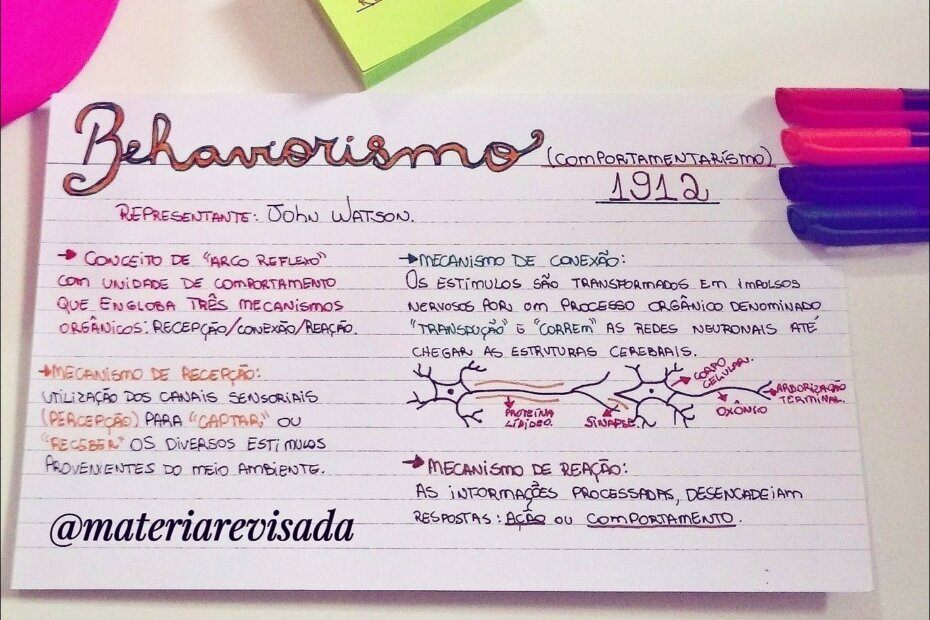 Behaviorismo (COMPORTAMENTARISMO)
1912
REPRESENTANTE: JOHN WATSON.
→ CONCEITO DE "ARCO REFLEXO"
COM UNIDADE DE COMPORTAMENTO
QUE ENGLOBA TRÊS MECANISMOS
ORGÂNICOS: RECEPÇÃO/CONEXÃO/REAÇÃO.
→ MECANISMO DE RECEPÇÃO:
UTILIZAÇÃO DOS CANAIS SENSORIAIS
(PERCEPÇÃO) PARA "CAPTAR" OU
"RECEBER" OS DIVERSOS ESTÍMULOS
PROVENIENTES DO MEIO AMBIENTE.
@materiarevisada
→ MECANISMO DE CONEXÃO:
OS ESTÍMULOS SÃO TRANSFORMADOS EM IMPULSOS
NERVOSOS POR UM PROCESSO ORGÂNICO DENOMINADO
"TRANSDUÇÃO" E "CORREM" AS REDES NEURONAIS ATÉ
CHEGAR AS ESTRUTURAS CEREBRAIS.
CORPO
CELULAR.
ARBORIZAÇÃO
TERMINAL.
OXÔNIO
PROTEÍNA
LIPÍDEO.
SINAPSE.
→ MECANISMO DE REAÇÃO:
AS INFORMAÇÕES PROCESSADAS, DESENCADEIAM
RESPOSTAS: AÇÃO OU COMPORTAMENTO.